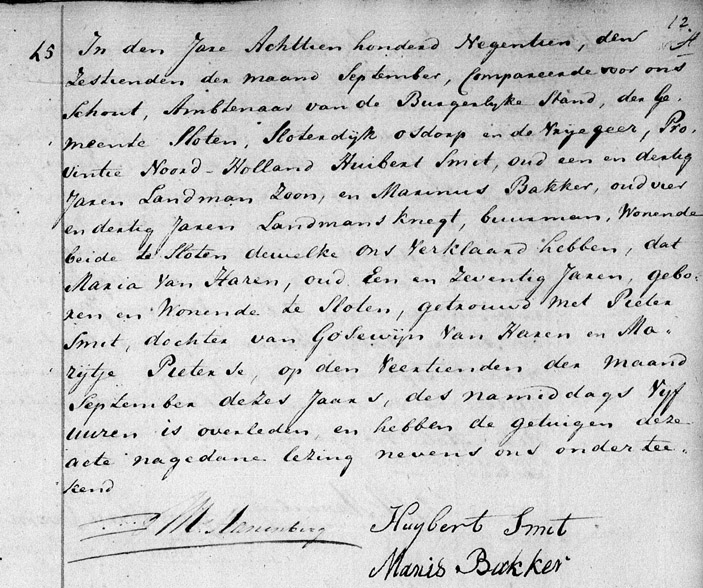 12
45 In den Jare Achttien honderd Negentien, den
Zestienden der maand September, Compareerde voor ons
Schout, Ambtenaar van de Burgerlyke Stand, der Ge-
meente Sloten, Sloterdyk osdorp en de Vryegeer, Pro-
vintie Noord-Holland Huibert Smit, oud een en dertig
Jaren Landman Zoon, en Marinus Bakker, oud vier
en dertig Jaren Landmans knegt, buurman, Wonende
beide te Sloten dewelke ons Verklaard hebben, dat
Maria Van Haren, oud, Een en Zeventig Jaren, gebo-
ren en Wonende te Sloten, getrouwd met Pieter
Smit, dochter van Gosewyn Van Haren en Ma-
rytje Pieterse, op den Veertienden der maand
September dezes Jaars, des namiddags Vyf
uuren is overleden, en hebben de getuigen deze
acte nagedane lezing nevens ons onder tee-
kend
Huybert Smit
Maris Bakker